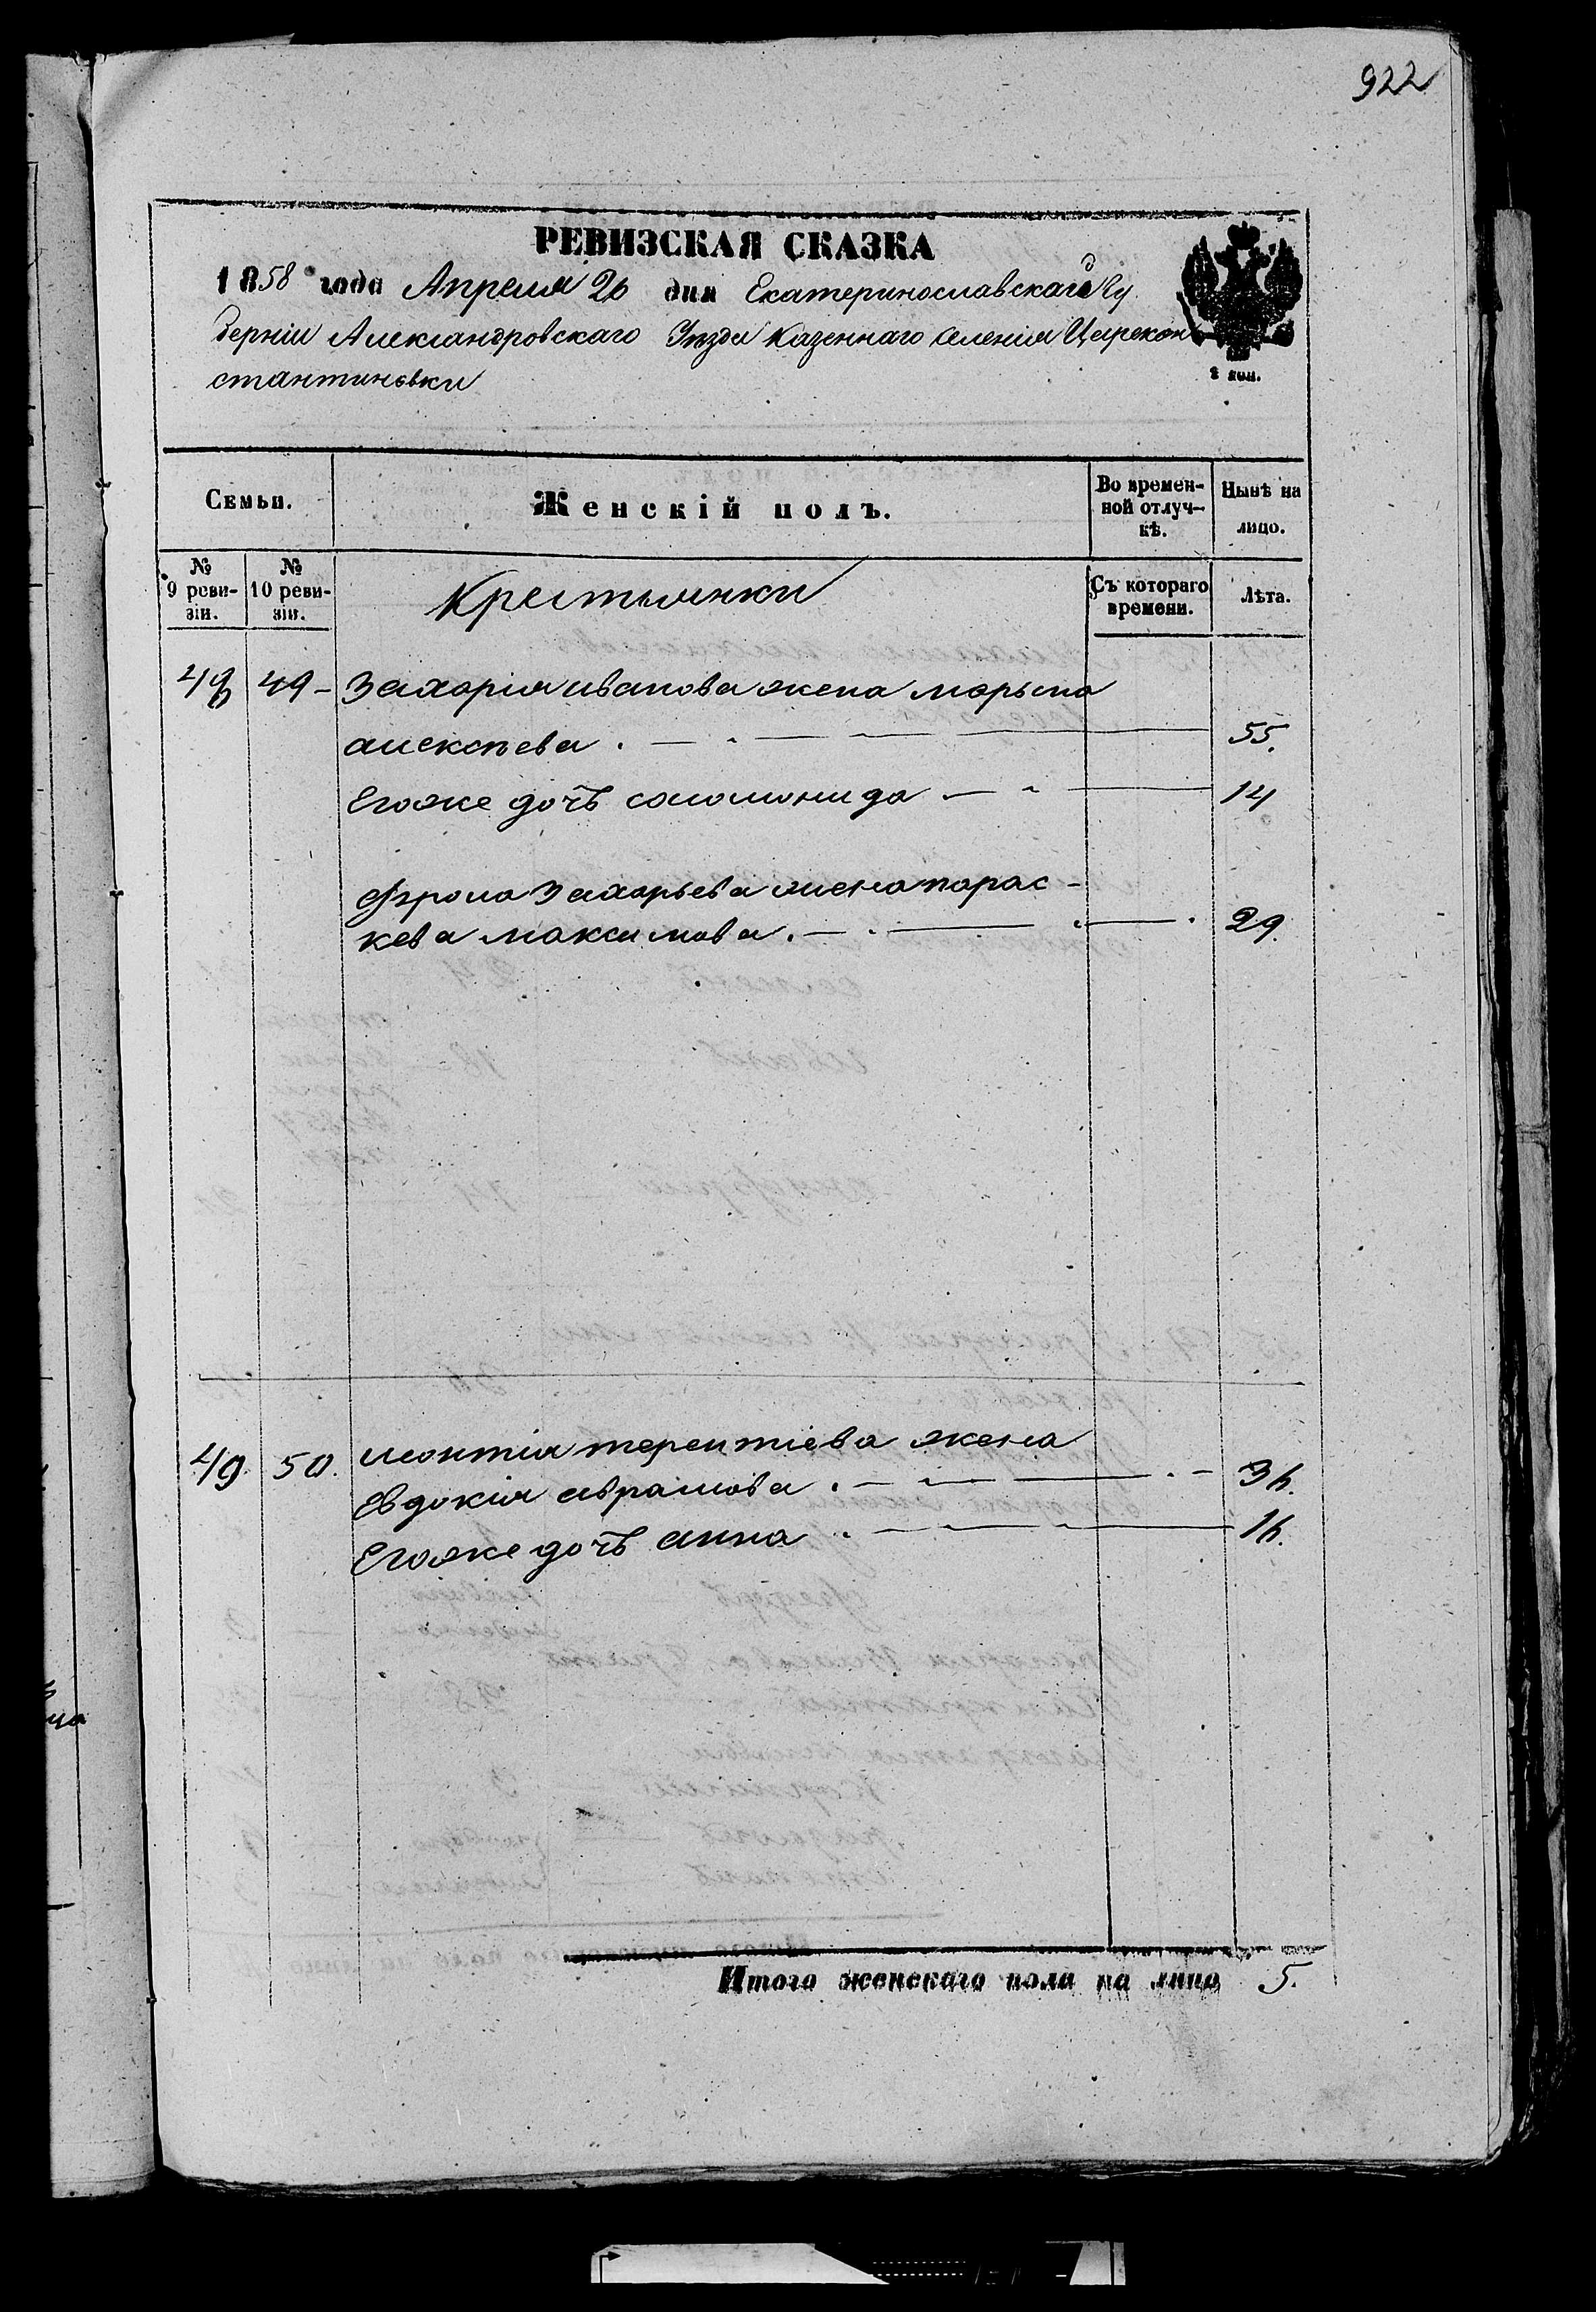 922
РЕВИЗСКАЯ СКАЗКА
1858 года Апреля 26 дня Екатеринославской Гу
берніи Александровскаго Уѣзда Казеннаго Селенія Царекон
стантиновки
2 коп.
Семьи. Женскій полъ. Во времен- Нынѣ на
ной отлуч- лицо.
кѣ.
№ № Крестьянки Съ котораго Лѣта.
9 реви- 10 реви- времени.
зіи. зіи.
48 49 - Захарія иванова жена марьяна
алексѣева . 55.
Егоже дочь соломонида 14
Фрола Захарьева жена парас-
кева максимова . 29.
49. 50. леонтія терентіева жена
Евдокія аврамова . 36.
Егоже дочь анна 16.
Итого женскаго пола на лицо 5.